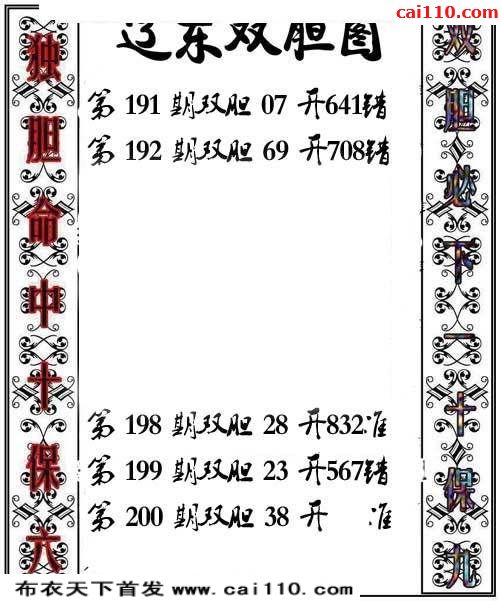 cai110.com
辽东双胆图
独胆命中十保六
第 191 期双胆 07 开641错
第 192 期双胆 69 开708错
第 198 期双胆 28 开832准
第 199 期双胆 23 开567错
第 200 期双胆 38 开 准
双胆必下一十保九
布衣天下首发 www.cai110.com